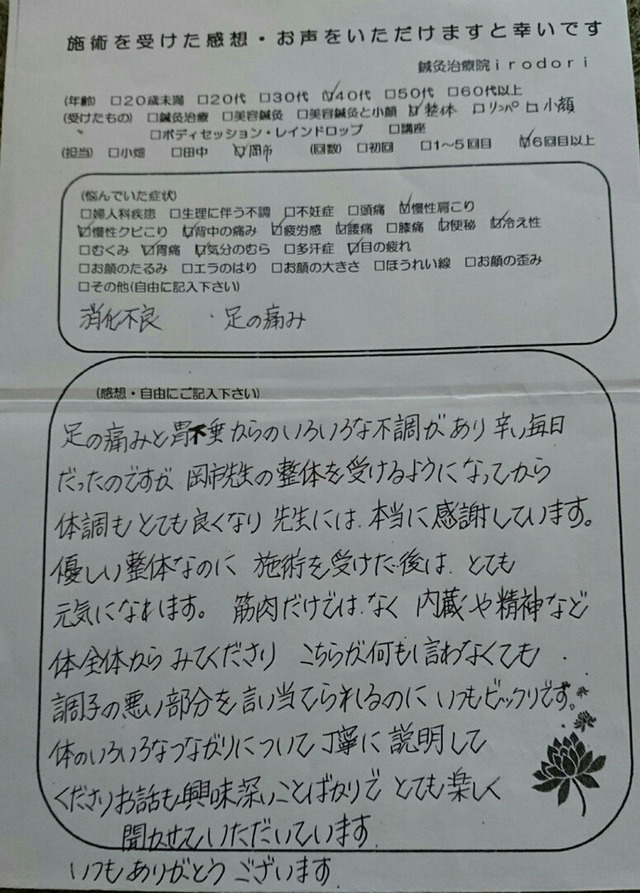 施術を受けた感想・お声をいただけますと幸いです
鍼灸治療院irodori
(年齢) □20歳未満 □20代 □30代 ☑40代 □50代 □60代以上
(受けたもの) □鍼灸治療 □美容鍼灸 □美容鍼灸と小顔 ☑整体 □リンパ □小顔
□ボディセッション・レインドロップ □講座
(担当) □小畑 □田中 ☑岡市 (回数) □初回 □1～5回目 ☑6回目以上
(悩んでいた症状)
□婦人科疾患 □生理に伴う不調 □不妊症 □頭痛 ☑慢性肩こり
☑慢性クビこり ☑背中の痛み ☑疲労感 ☑腰痛 □膝痛 ☑便秘 ☑冷え性
□むくみ ☑胃痛 ☑気分のむら □多汗症 ☑目の疲れ
□お顔のたるみ □エラのはり □お顔の大きさ □ほうれい線 □お顔の歪み
□その他(自由に記入下さい)
消化不良 ・足の痛み
(感想・自由にご記入下さい)
足の痛みと胃下垂からのいろいろな不調があり辛い毎日
だったのですが 岡市先生の整体を受けるようになってから
体調もとても良くなり 先生には本当に感謝しています。
優しい整体なのに 施術を受けた後は とても
元気になれます。 筋肉だけではなく 内蔵や精神など
体全体からみてくださり こちらが何も言わなくても
調子の悪い部分を言い当てられるのにいつもビックリです。
体のいろいろなつながりについて丁寧に説明して
くださりお話も興味深いことばかりで とても楽しく
聞かせていただいています
いつもありがとうございます